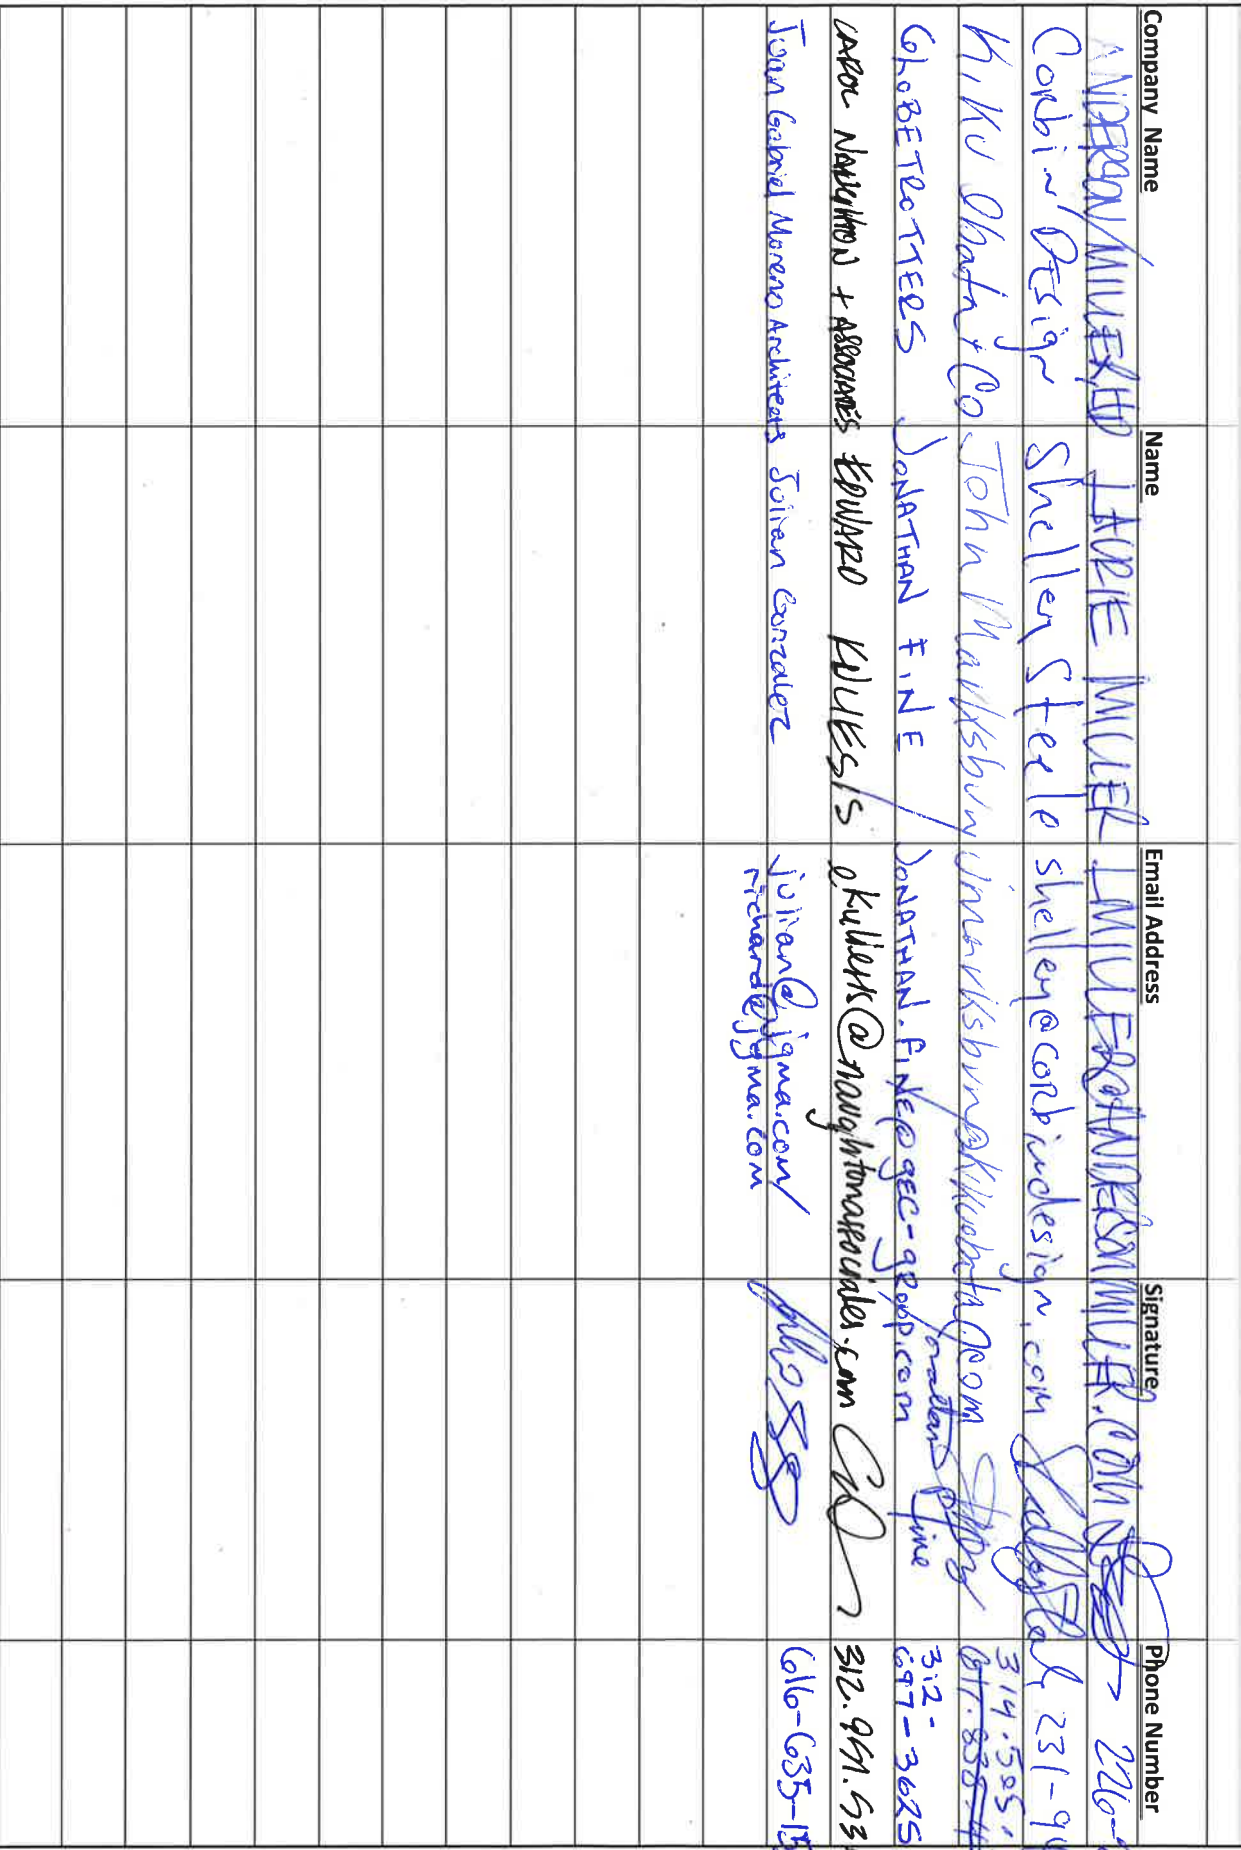 Company Name Name Email Address Signature Phone Number
ANDERSON/MILLER, LTD LAURIE MILLER LMILLER@ANDERSONMILLER.COM 226-
Corbin Design Shelley Steele shelley@corbindesign.com 231-9
Kiku Obata + Co John Marksbury jmarksbury@kikuobata.com 314.505.
GLOBETROTTERS JONATHAN FINE JONATHAN.FINE@GEC-GROUP.COM Jonathan Fine 312-
697-3625
CAROL NAUGHTON + ASSOCIATES EDWARD KULIESIS ekuliesis@naughtonassociates.com 312.951.53
Juan Gabriel Moreno Architects Julian Gonzalez julian@jgma.com/ 616-635-15
richard@jgma.com